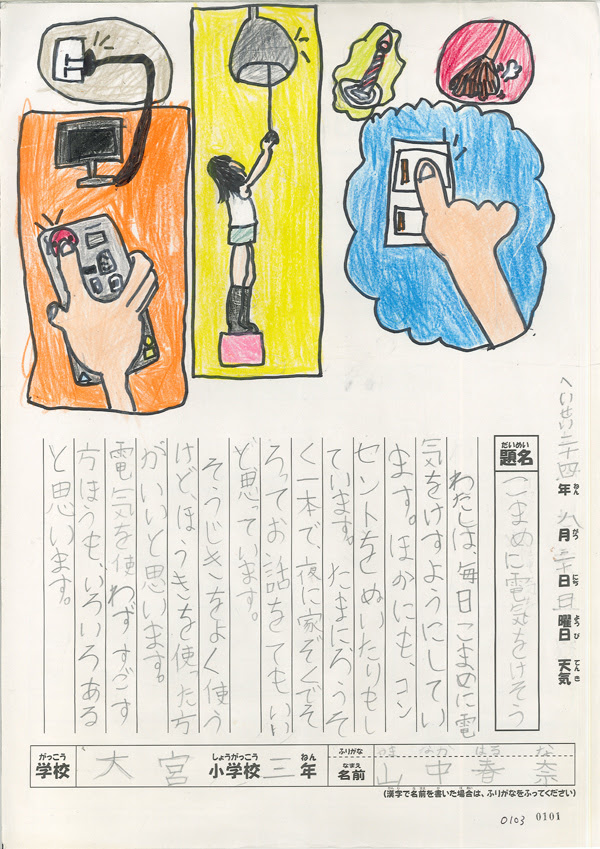 へいせい二十四年八月三十日日曜日 天気
題名 こまめに電気をけそう
わたしは、毎日こまめに電
気をけすようにしてい
ます。ほかにも、コン
セントをぬいたりもし
ています。たまにろうそ
く一本で、夜に家ぞくでそ
ろってお話をてもいい
ど思っています。
そうじきをよく使う
けど、ほうきを使った方
がいいと思います。
電気を使わずすごす
方ほうも、いろいろある
と思います。
学校 大宮小学校三年
ふりがな やまなかはるな
名前 山中春奈
(漢字で名前を書いた場合は、ふりがなをふってください)
0103 0101